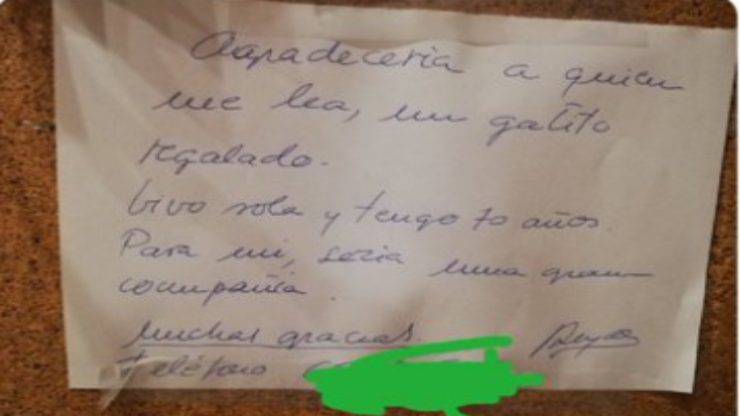 Agradeceria a quien
me lea, un gatito
regalado.
Vivo sola y tengo 70 años.
Para mi, seria una gran
compañia.
Muchas gracias.
Teléfono